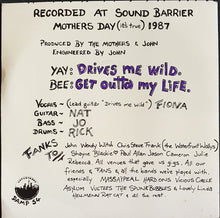 RECORDED AT SOUND BARRIER
MOTHERS DAY (it's true) 1987
PRODUCED BY THE MOTHERS & JOHN
ENGINEERED BY JOHN
YAY: DRIVES ME WILD.
BEE: GET OUTTA MY LIFE.
VOCALS - (Lead guitar "Drives me wild") FIONA
GUITAR - NAT
BASS - JO
DRUMS - RICK
FANKS TO//
John Wendy Witch Chris Steve Frank (the Waterfront Wallys)
Shayne Blackie Paul Allan Jason Cameron Julie
Rebecca. All venues that gave us gigs. All our
friends & FANS, & all the bands we were played with,
especially MASSAPPEAL HARD ONS VICIOUS CIRCLE
ASYLUM VICTIMS THE SOUNDBUBBLES & Lovely Lindas